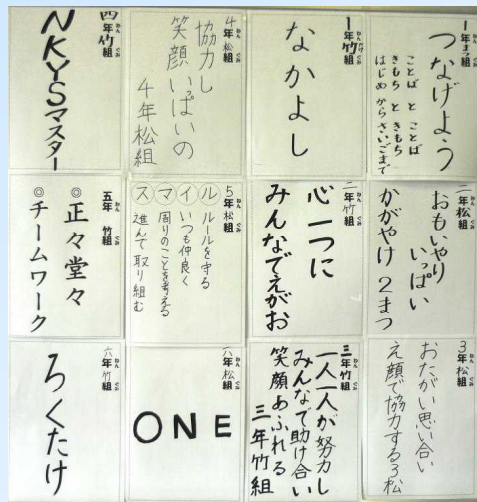 1年まつ組
つなげよう
ことば と ことば
きもち と きもち
はじめ からさいごまで
1年竹組
なかよし
4年松組
協力し
笑顔いっぱいの
4年松組
四年竹組
NKYSマスター
二年松組
おもいやり
いっぱい
かがやけ 2まつ
二年竹組
心一つに
みんなでえがお
5年松組
ル ルールを守る
イ いつも仲良く
マ 周りのことを考える
ス 進んで取り組む
五年 竹組
◎正々堂々
◎チームワーク
3年松組
おたがい思い合い
え顔で協力する3松
三年竹組
一人一人が努力し
みんなで助け合い
笑顔あふれる
三年竹組
六年松組
ONE
六年竹組
ろくたけ